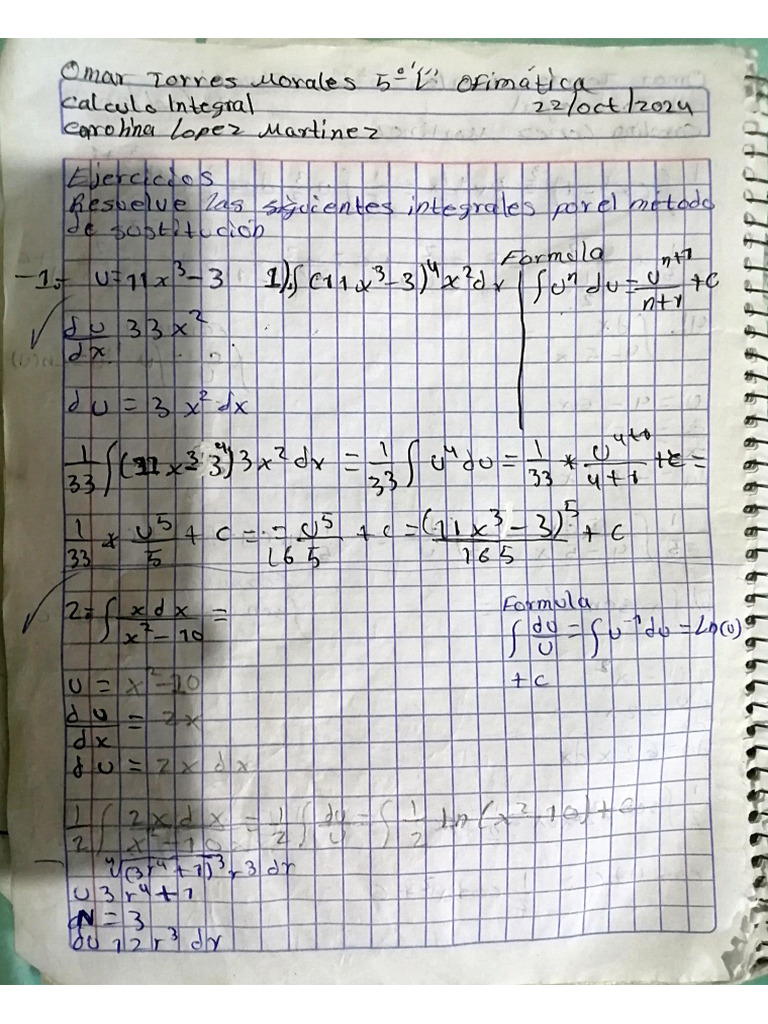 Omar Torres Morales 5º "L" Ofimática
Calculo Integral 22/oct/2024
Carolina Lopez Martinez
Ejercicios
Resuelve las siguientes integrales por el método
de sustitución
Formula
-1.- u=11x³-3 1).∫(11x³-3)⁴x²dx ∫uⁿ du = uⁿ⁺¹/n+1 +c
du/dx 33x²
du = 3 x² dx
1/33 ∫(11x³ 3⁴)3x² dx = 1/33 ∫ u⁴ du = 1/33 * u⁴⁺¹/4+1 +c =
1/33 * u⁵/5 + c = = u⁵/165 + c = (11x³-3)⁵/165 + c
2= ∫ x dx/x²-10 =
Formula
∫ du/u = ∫u⁻¹du = Ln(u)
+c
u = x²-10
du/dx = 2x
du = 2x dx
1/2 ∫ 2x dx/x²-10 = 1/2 ∫ du/u = ∫ 1/2 ln(x²-10)+c
⁴√(3r⁴+1)³ r3 dr
u 3r⁴+1
N = 3
du 12r³ dr